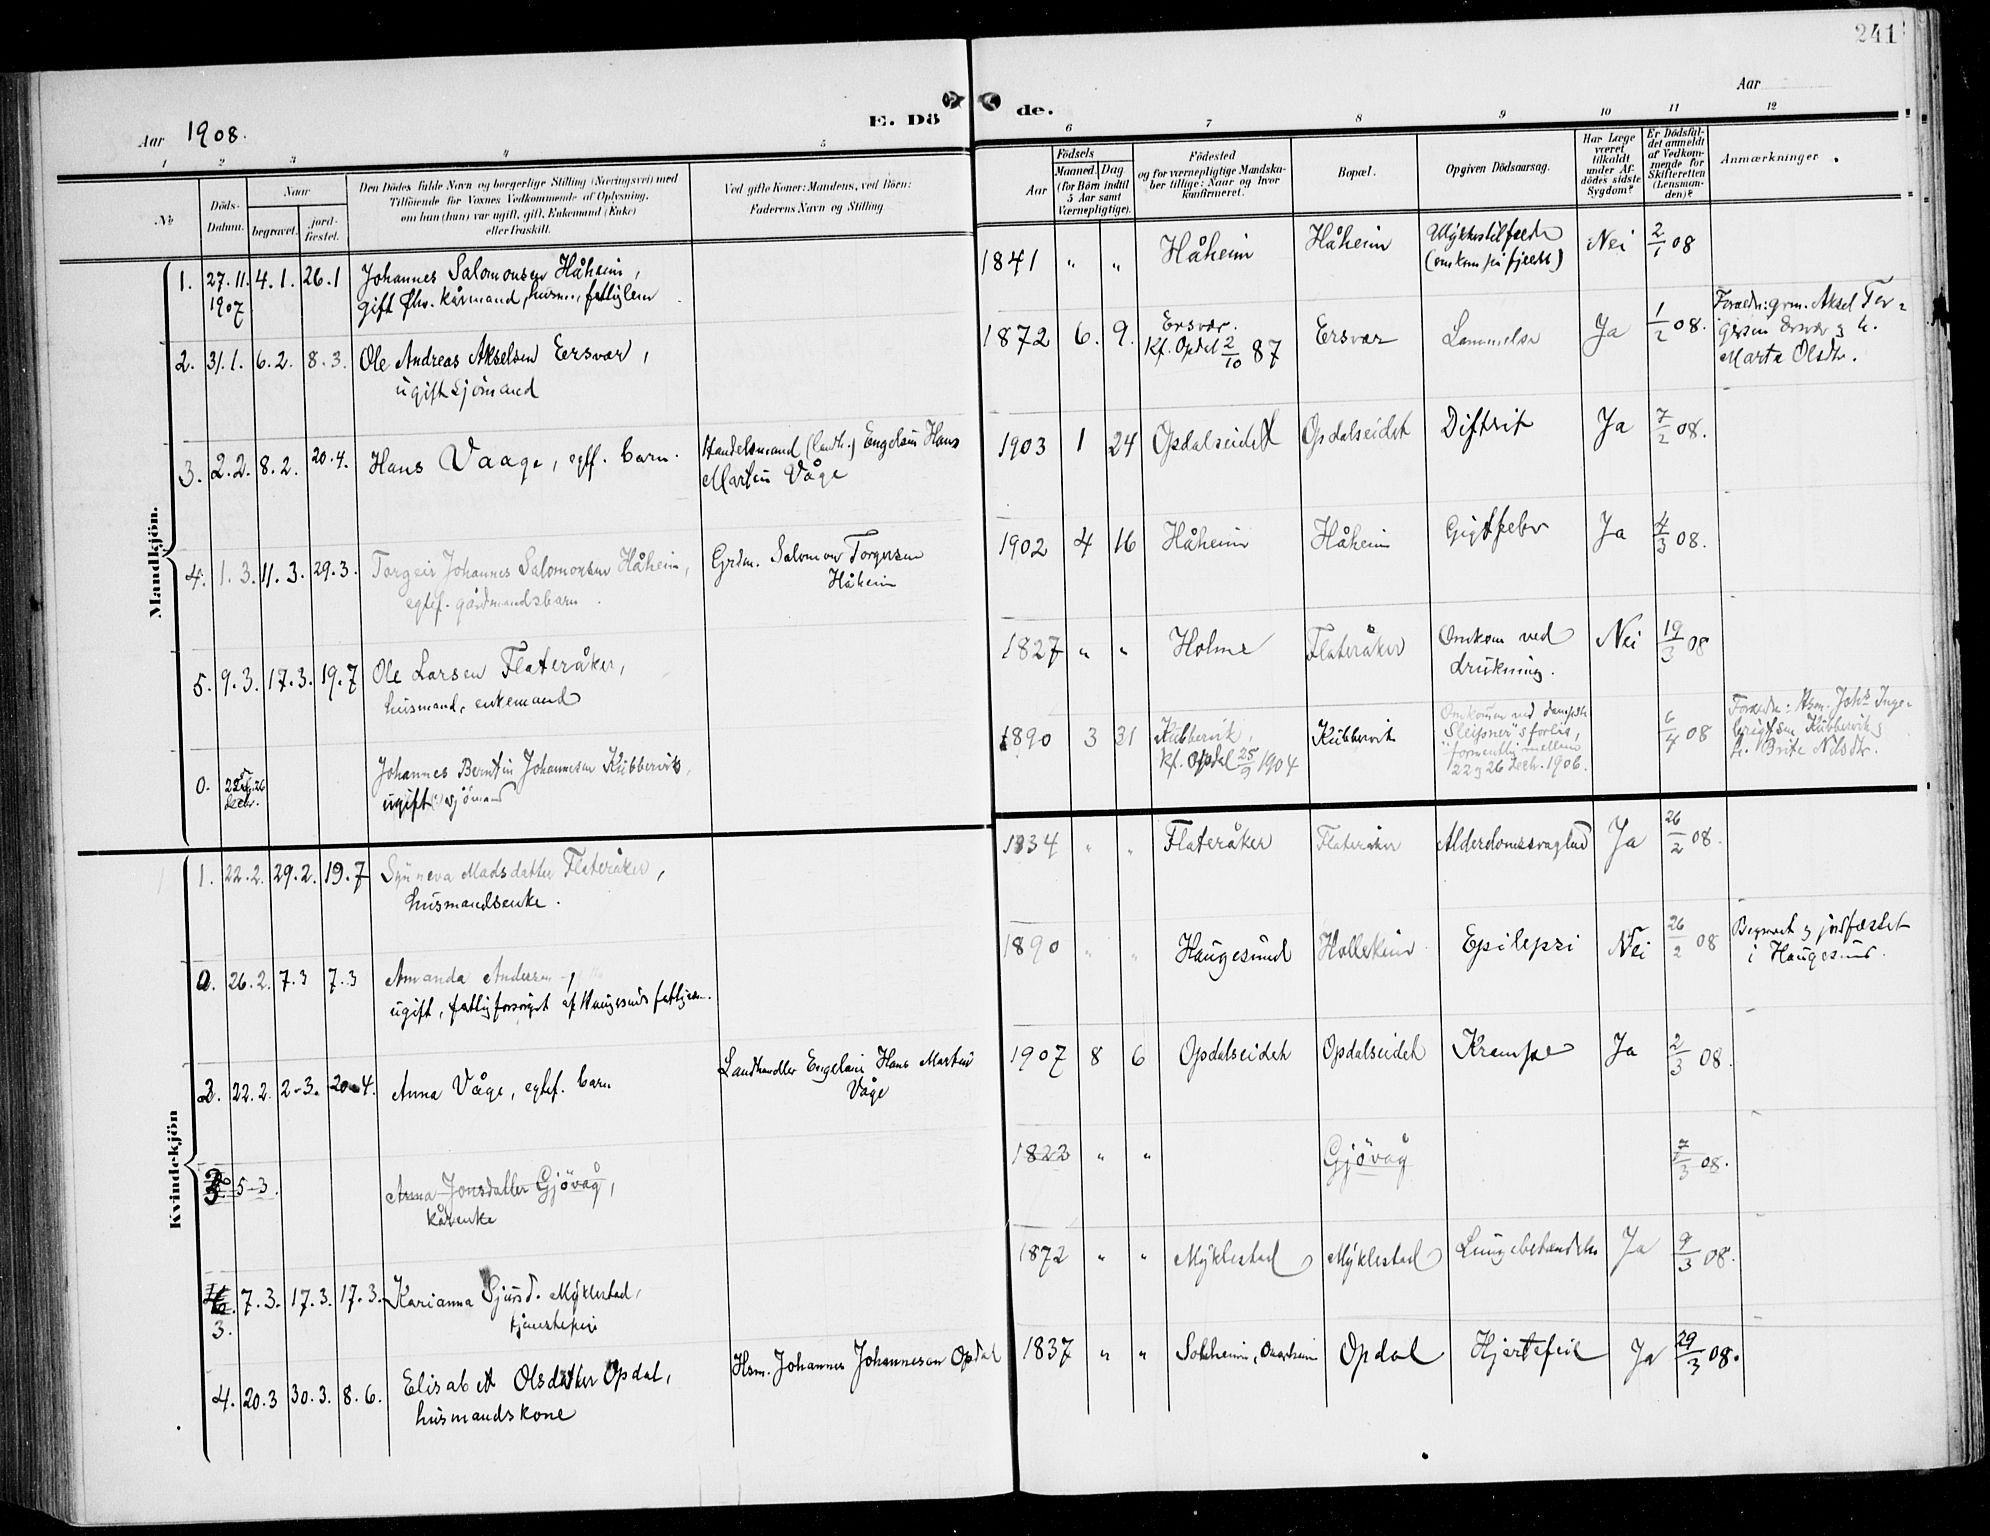 241
Aar 1908.
E. Dö de.
Aar
1 2 3 4 5 6 7 8 9 10 11 12
No
Döds-Datum.
Naar
begravet.
jord-fæstet.
Den Dödes fulde Navn og borgerlige Stilling (Næringsvei) med
Tilföiende for Voxnes Vedkommende af Oplysning,
om han (hun) var ugift, gift, Enkemand (Enke)
eller fraskilt.
Ved gifte Koner: Mandens, ved Börn:
Faderens Navn og Stilling
Födsels
Aar
Maaned.
Dag
(for Börn indtil
5 Aar samt
Værnepligtige).
Födested
og for værnepligtige Mandska-
ber tillige: Naar og hvor
konfirmeret.
Bopæl.
Opgiven Dödsaarsag.
Har Læge
været
tilkaldt
under Af-
dödes sidste
Sygdom?
Er Dödsfal-
det anmeldt
af Vedkom-
mende for
Skifteretten
(Lensman-
den)?
Anmærkninger.
Mandkjön.
1. 27.11. 4.1. 26.1 Johannes Salomonsen Håheim, 1841 " " Håheim Håheim Ulykkestilfælde Nei 2/1 08
1907 gift fhv. kårmand, husm., fattiglem (omkom på fjeldet)
2. 31.1. 6.2. 8.3. Ole Andreas Akselsen Ersvær, 1872 6. 9. Ersvær. Ersvær Lammelse Ja 1/2 08. Forældr: grm. Aksel Tor-
ugift sjömand kf. Opdal 2/10 87 gersen Ersvær og h.
Marta Olsdtr.
3. 2.2. 8.2. 20.4. Hans Vaage, egtf. barn. Handelsmand (landh.) Engelsin Hans 1903 1 24 Opdalseidet Opdalseidet Diftrit Ja 7/2 08.
Martin Våge
4. 1.3. 11.3. 29.3. Torgeir Johannes Salomonsen Håheim, Grdm. Salomon Torgersen 1902 4 16 Håheim Håheim Gigtfeber Ja 4/3 08.
egtef. gårdmandsbarn. Håheim
5. 9.3. 17.3. 19.7 Ole Larsen Flateråker, 1827 " " Holme Flateråker Omkom ved Nei 19/3 08
husmand, enkemand drukning.
0. 22 26 Johannes Berntin Johannesen Kubbervik, 1890 3 31 Kubbervik, Kubbervik Omkommen ved dampsk. 6/4 08 Forældr: Hsm. Johs Inge-
decb. ugift sjömand kf. Opdal 25/9 1904 "Sleipner"s forlis, brigtsen Kubbervik og
formentlig mellem h. Brite Nilsdtr.
22 og 26 decb. 1906.
Kvindekjön
1. 22.2. 29.2. 19.7 Synneva Madsdatter Flateråker, 1834 " " Flateråker Flateråker Alderdomssvaghed Ja 26/2 08.
husmandsenke.
0. 26.2. 7.3 7.3 Amanda Andersen, 1890 " " Haugesund Epilepsi Nei 26/2 08 Begravet og jordfæstet
ugift, fattigforsörget af Haugesunds fattigv. i Haugesund.
2. 22.2. 2-3. 20-4. Anna Våge, egtef. barn Landhandler Engelsin Hans Martin 1907 8 6 Opdalseidet Opdalseidet Krampe Ja 2/3 08.
Våge
3 5-3. Anna Jonsdatter Gjövåg, 1823 " " Gjövåg 7/3 08.
kårenke
7.3. 17.3. 17.3. Karianna Sjursd. Myklestad, 1872 " " Myklestad Myklestad Lungebetændelse Ja 9/3 08.
3. tjenestepige
4. 20.3 30.3. 8.6. Elisabet Olsdatter Opdal, Hsm. Johannes Johannesen Opdal 1837 " " Solheim, Opdal Hjertefeil Ja 29/3 08.
husmandskone